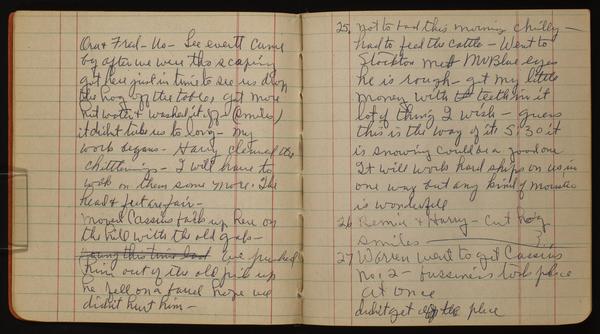 Ora & Fred - Us - Lee everett came
by after we were tho scaping
got here just in time to see us drop
the hog off the table, got more
hot water & washed it off - (smiles)
it didnt take us to long - my
work began - Harry cleaned the
chittlennings - I will have to
work on them some more. The
head & feet are fair -
moved Cassius back up here on
the hill with the old gals -
we pushed
him out of the old pick up
he fell on a barrel hope we
didn't hurt him -
25, not to bad this morning chilly -
had to feed the cattle - Went to
Stockton met Mr Blue eyes
he is rough - got my little
money with teeth in it
lot of things I wish - guess
this is the way of it. 5:30 it
is snowing could be a good one
It will work hard ships on us, in
one way but any kind of moisture
is wonderful
26 Bernice & Harry - cut hog
smiles
27 Warren went to get Cassius
no. 2 - business took place
at once
didn't get off the place